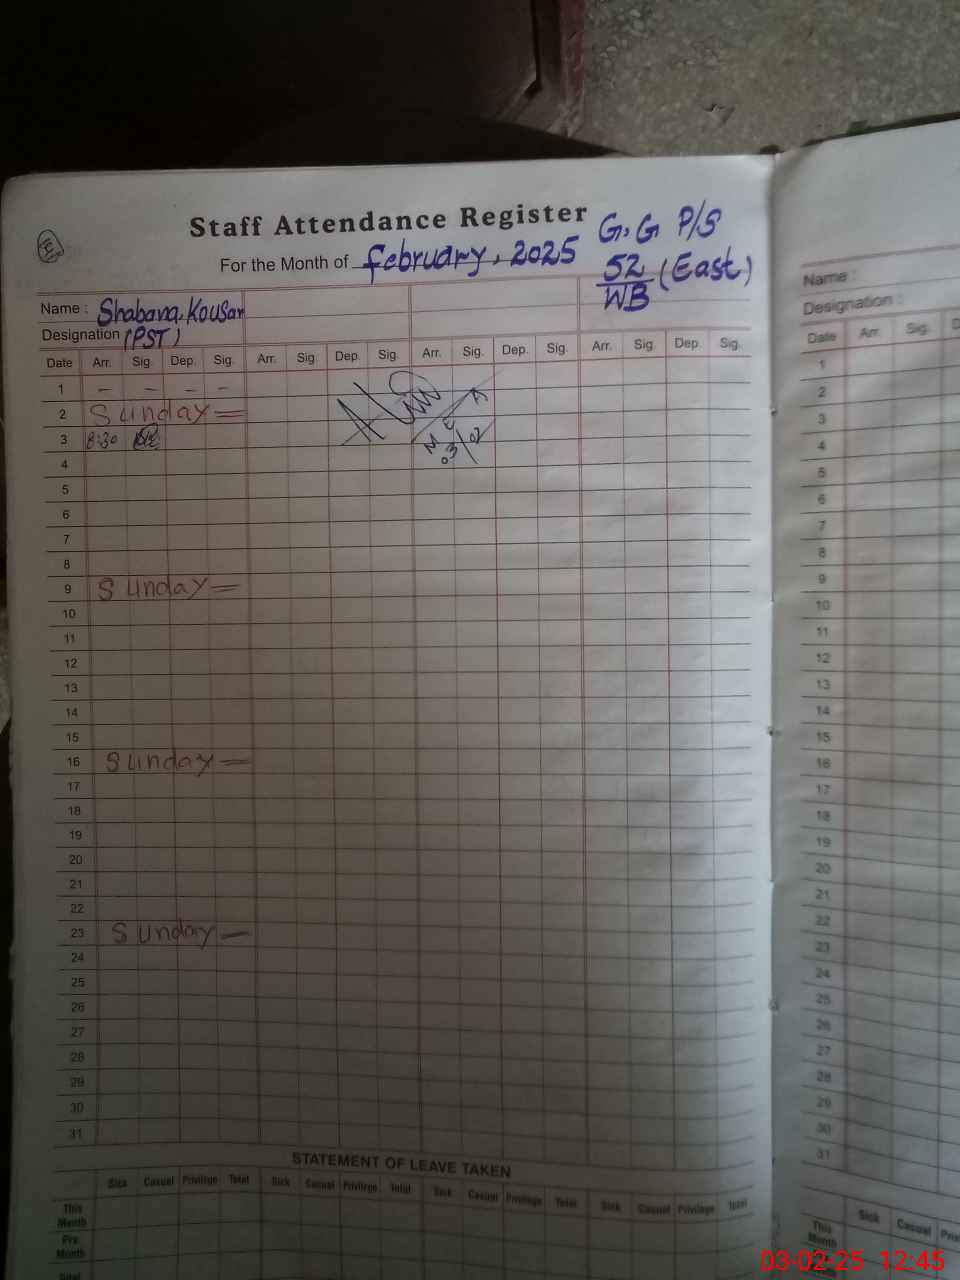 Staff Attendance Register
For the Month of February, 2025
G.G P/S
52/WB (East)
Name : Shabana Kousar
Designation (PST)
Date Arr. Sig. Dep. Sig. Arr. Sig. Dep. Sig. Arr. Sig. Dep. Sig. Arr. Sig. Dep. Sig.
1 – – – –
2 Sunday =
3 8:30
4
5
6
7
8
9 Sunday =
10
11
12
13
14
15
16 Sunday =
17
18
19
20
21
22
23 Sunday –
24
25
26
27
28
29
30
31
M E A
03/02
STATEMENT OF LEAVE TAKEN
Sick Casual Privilege Total Sick Casual Privilege Total Sick Casual Privilege Total Sick Casual Privilege Total
This Month
Pre. Month
Total
Name :
Designation :
Date Arr. Sig. D
1
2
3
4
5
6
7
8
9
10
11
12
13
14
15
16
17
18
19
20
21
22
23
24
25
26
27
28
29
30
31
Sick Casual Priv
This Month
Pre. Month
03-02-25 12:45